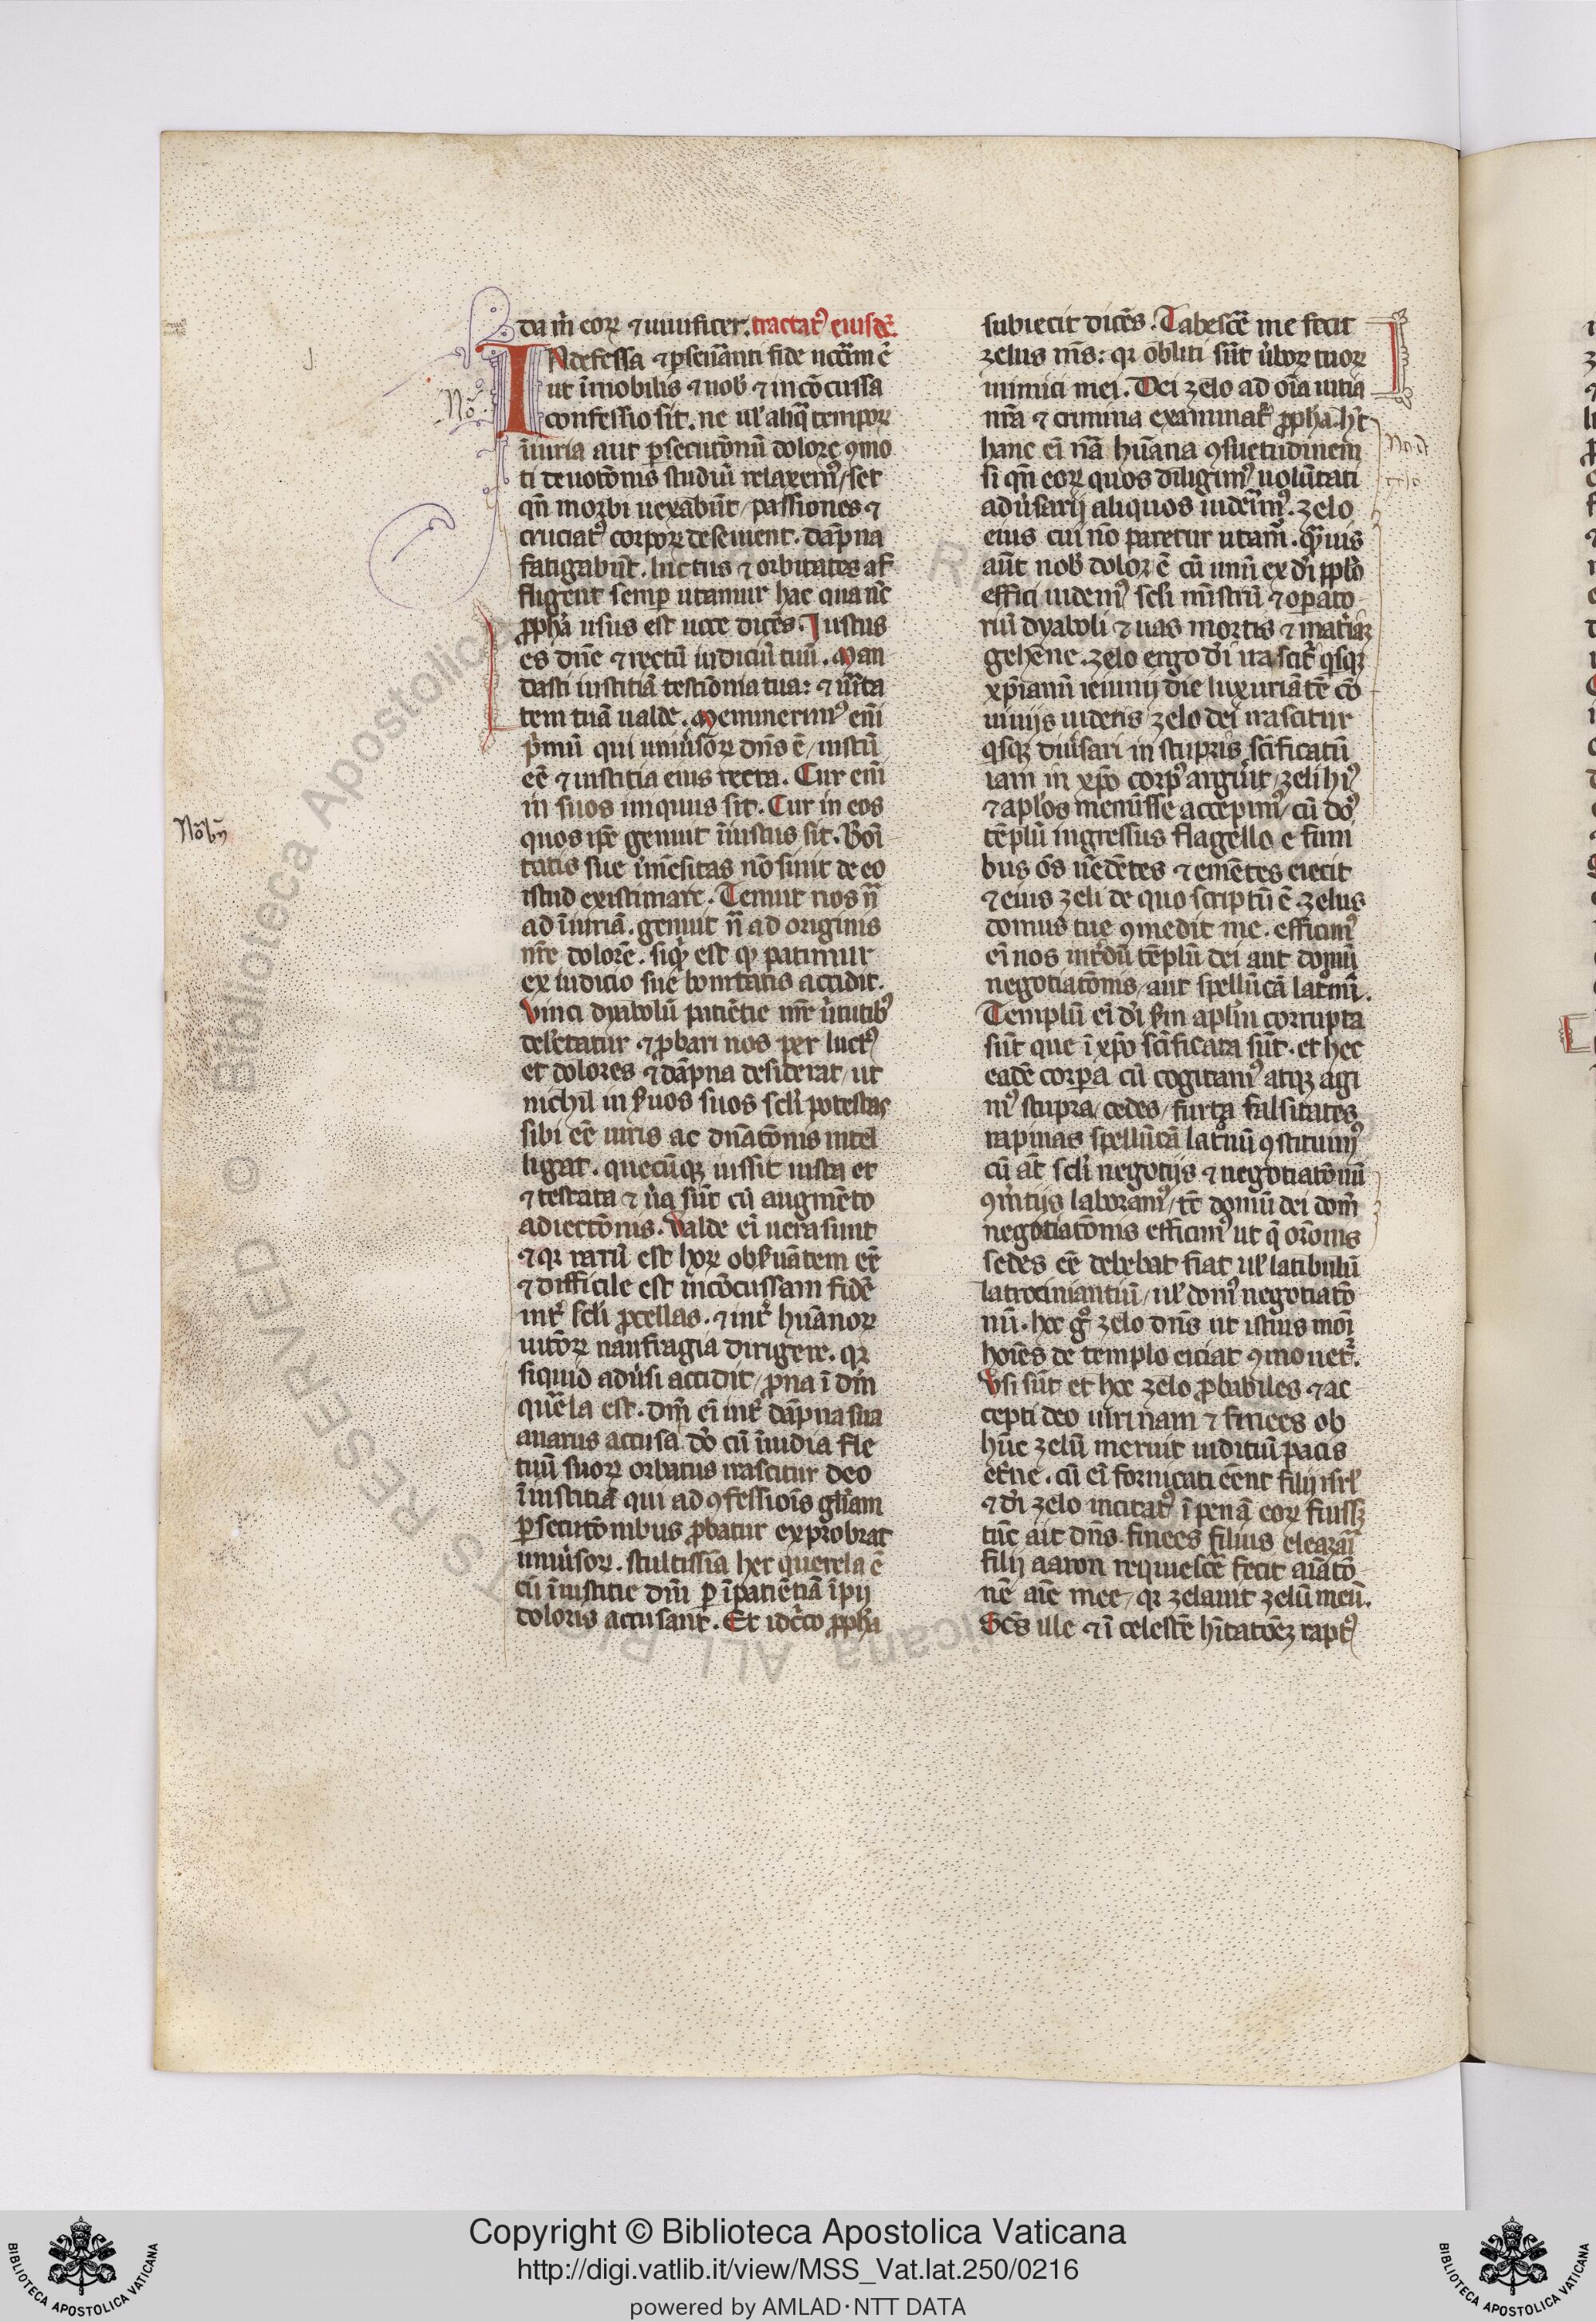 dam̄ eoꝝ ⁊ uiuificet. tractatꝰ eiusdē.
INdefessa ⁊ ꝑseuāti fide uccām ē
ut īmobilis ⁊ nob̾ ⁊ incōcussa
confessio sit. ne ul̾ aliq̄ tempoꝝ
īiuria aut ꝑsecutōnū dolore ꝯmo
ti deuotōnis studiū relaxemꝰ / set
qn̄ morbi uexabūt / passiones ⁊
cruciatꝰ corpoꝝ deseuient. dāpna
fatigabūt. luctus ⁊ orbitates af
fligent semꝑ utamur hac qua nūc
ꝓpha usus est uoce dicēs. Iustus
es dn̄e ⁊ rectū iudiciū tuū. Man
dasti iustitiā testiōnia tua: ⁊ u̾ita
tem tuā ualde. Meminerimꝰ eni
p̾mū qui uniu̾soꝝ dn̄s ē / iustū
eē ⁊ iustitia eius recta. Cur eni
in suos iniquus sit. Cur in eos
quos ip̄e genuit īiustus sit. Boni
tatis sue īmēsitas nō sinit de eo
istud existimare. Tenuit nos n̄
ad īiuriā. genuit n̄ ad originis
nr̄e dolorē. siq̾ est qđ patimur
ex iudicio sue bonitatis accidit.
Vinci dyabolū patiētie nr̄e u̾tutibꝰ
delc̄tatur ⁊ ꝓbari nos per luctꝰ
et dolores ⁊ dāpna desiderat / ut
nichil in s̾uos suos scl̾i potestas
sibi eē iuris ac dn̄atōnis intel
ligat. quecūqꝫ iussit iusta et
⁊ testata ⁊ u̾a sūt cū augmēto
adiectōnis. Valde ei uera sunt
⁊ qꝛ rarū est hoꝝ obs̾uātem eē
⁊ difficile est incōcussam fidē
int̾ scl̾i ꝓcellas. ⁊ int̾ huānoꝝ
uitōꝝ naufragia dirigere. qꝛ
siquid adu̾si accidit / ꝓna ī dm̄
quer̄la est. dm̄ ei int̾ dāpna sua
auarus accusa do̾ cū īuidia fle
tuū suoꝝ orbatus irascitur deo
īiustitiā qui ad ꝯfessiōis gl̾iam
ꝑsecutōnibus ꝓbatur exprobrat
uniu̾soꝝ. stultissīa hec querela ē
cū īiustitie dm̄ ꝑ īpatiētiā īpij
doloris accusant. Et idc̄co ꝓpha
subiecit dicēs. Tabescē me fecit
zelus ms̄: qꝛ obliti sūt u̾boꝝ tuoꝝ
inimici mei. Dei zelo ad oīa uitia
nr̄a ⁊ crimina examinat̾ ꝓpha. ht̾
hanc ei nā huāna ꝯsuetudinem
si qn̄ eoꝝ quos diligimꝰ uolūtati
adu̾sarij aliquos uidemꝰ. zelo
eius cui nō paretur utam̄. qͣuis
aūt nob̾ dolor ē cū unū ex di̾ pplō
effici uidemꝰ scl̾i mīstrū ⁊ opato
riū dyaboli ⁊ uas mortis ⁊ mat̾iaꝫ
gehēne. zelo ergo di̾ irascit̾ qsqꝫ
xp̄ianū ieiunij die luxuriātē cō
uiuijs uidens zelo dei irascitur
qsqꝫ diu̾sari in stupris sc̄ificatū
iam in xp̄o corpꝰ argu̾it / zeli hiꝰ
⁊ apl̾os meīisse accepimꝰ / cū doꝰ
tēplū ingressus flagello e funi
bus ōs uēdētes ⁊ emētes eiecit
⁊ eius zeli de quo scriptū ē. zelus
domus tue ꝯmedit me. efficimꝰ
ei nos int̾dū tēplū dei aut domū
negotiatōnis / aut spellūcā lat̾nū.
Templū ei di̾ s̾m apl̾m corrupta
sūt que ī xp̄o sc̄ificata sūt. et hec
eadē corpa cū cogitamꝰ atqꝫ agi
mꝰ stupra / cedes / furta / falsitates
rapinas spellūcā lat̾nū ꝯstituimꝰ
cū āt scl̾i negotijs ⁊ negotiatōnū
ꝯm̾tijs laboramꝰ / tc̄ domū dei dom̄
negotiatōnis efficimꝰ ut q̄ orōnis
sedes eē debebat fiat ul̾ latibulū
latrociniantiū / ul̾ domꝰ negotiatō
nū. hoc g̾ zelo dn̄s ut istius moī
hoīes de templo eiciat ꝯmouet̾.
Vsi sūt et hoc zelo ꝓbabiles ⁊ ac
cepti deo uiri nam ⁊ finees ob
hūc zelū meruit iudituū pacis
et̾ne. cū ei fornicati eēnt filij isrl̾
⁊ di̾ zelo incitatꝰ ī penā eoꝝ fuissꝫ
tūc ait dn̄s. finees filius eleazari
filij aaron requiescē fecit aīatō
nē aīe mee / qꝛ zelauit zelū meū.
Gēs ille ⁊ ī celestē hītatōeꝫ raptꝰ
Copyright © Biblioteca Apostolica Vaticana
http://digi.vatlib.it/view/MSS_Vat.lat.250/0216
powered by AMLAD·NTT DATA
BIBLIOTECA APOSTOLICA VATICANA
BIBLIOTECA APOSTOLICA VATICANA